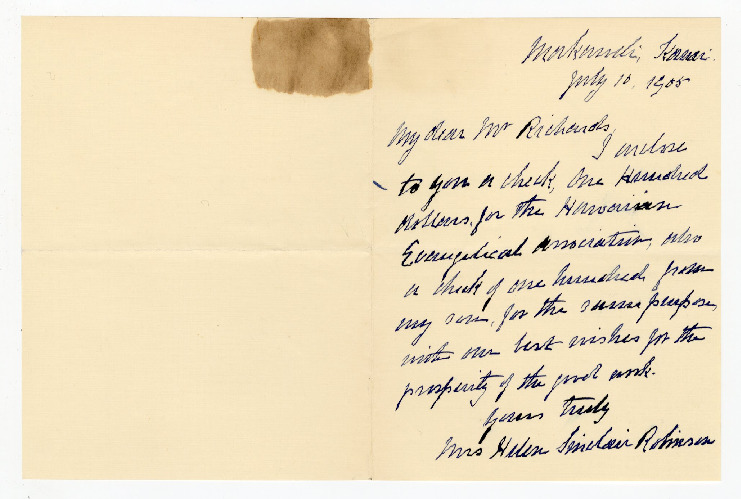 Makaweli, Kauai.
July 10, 1905
My dear Mr Richards,
I enclose
to you a check, One Hundred
dollars, for the Hawaiian
Evangelical Association, also
a check of one hundred from
my son, for the same purpose,
with our best wishes for the
prosperity of the good work.
Yours truly
Mrs Helen Sinclair Robinson